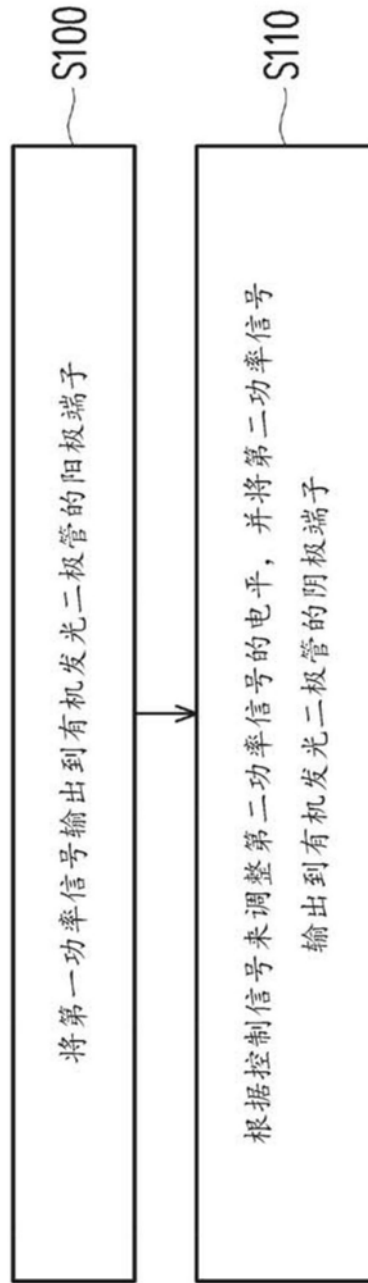 将第一功率信号输出到有机发光二极管的阳极端子
S100
根据控制信号来调整第二功率信号的电平，并将第二功率信号
输出到有机发光二极管的阴极端子
S110